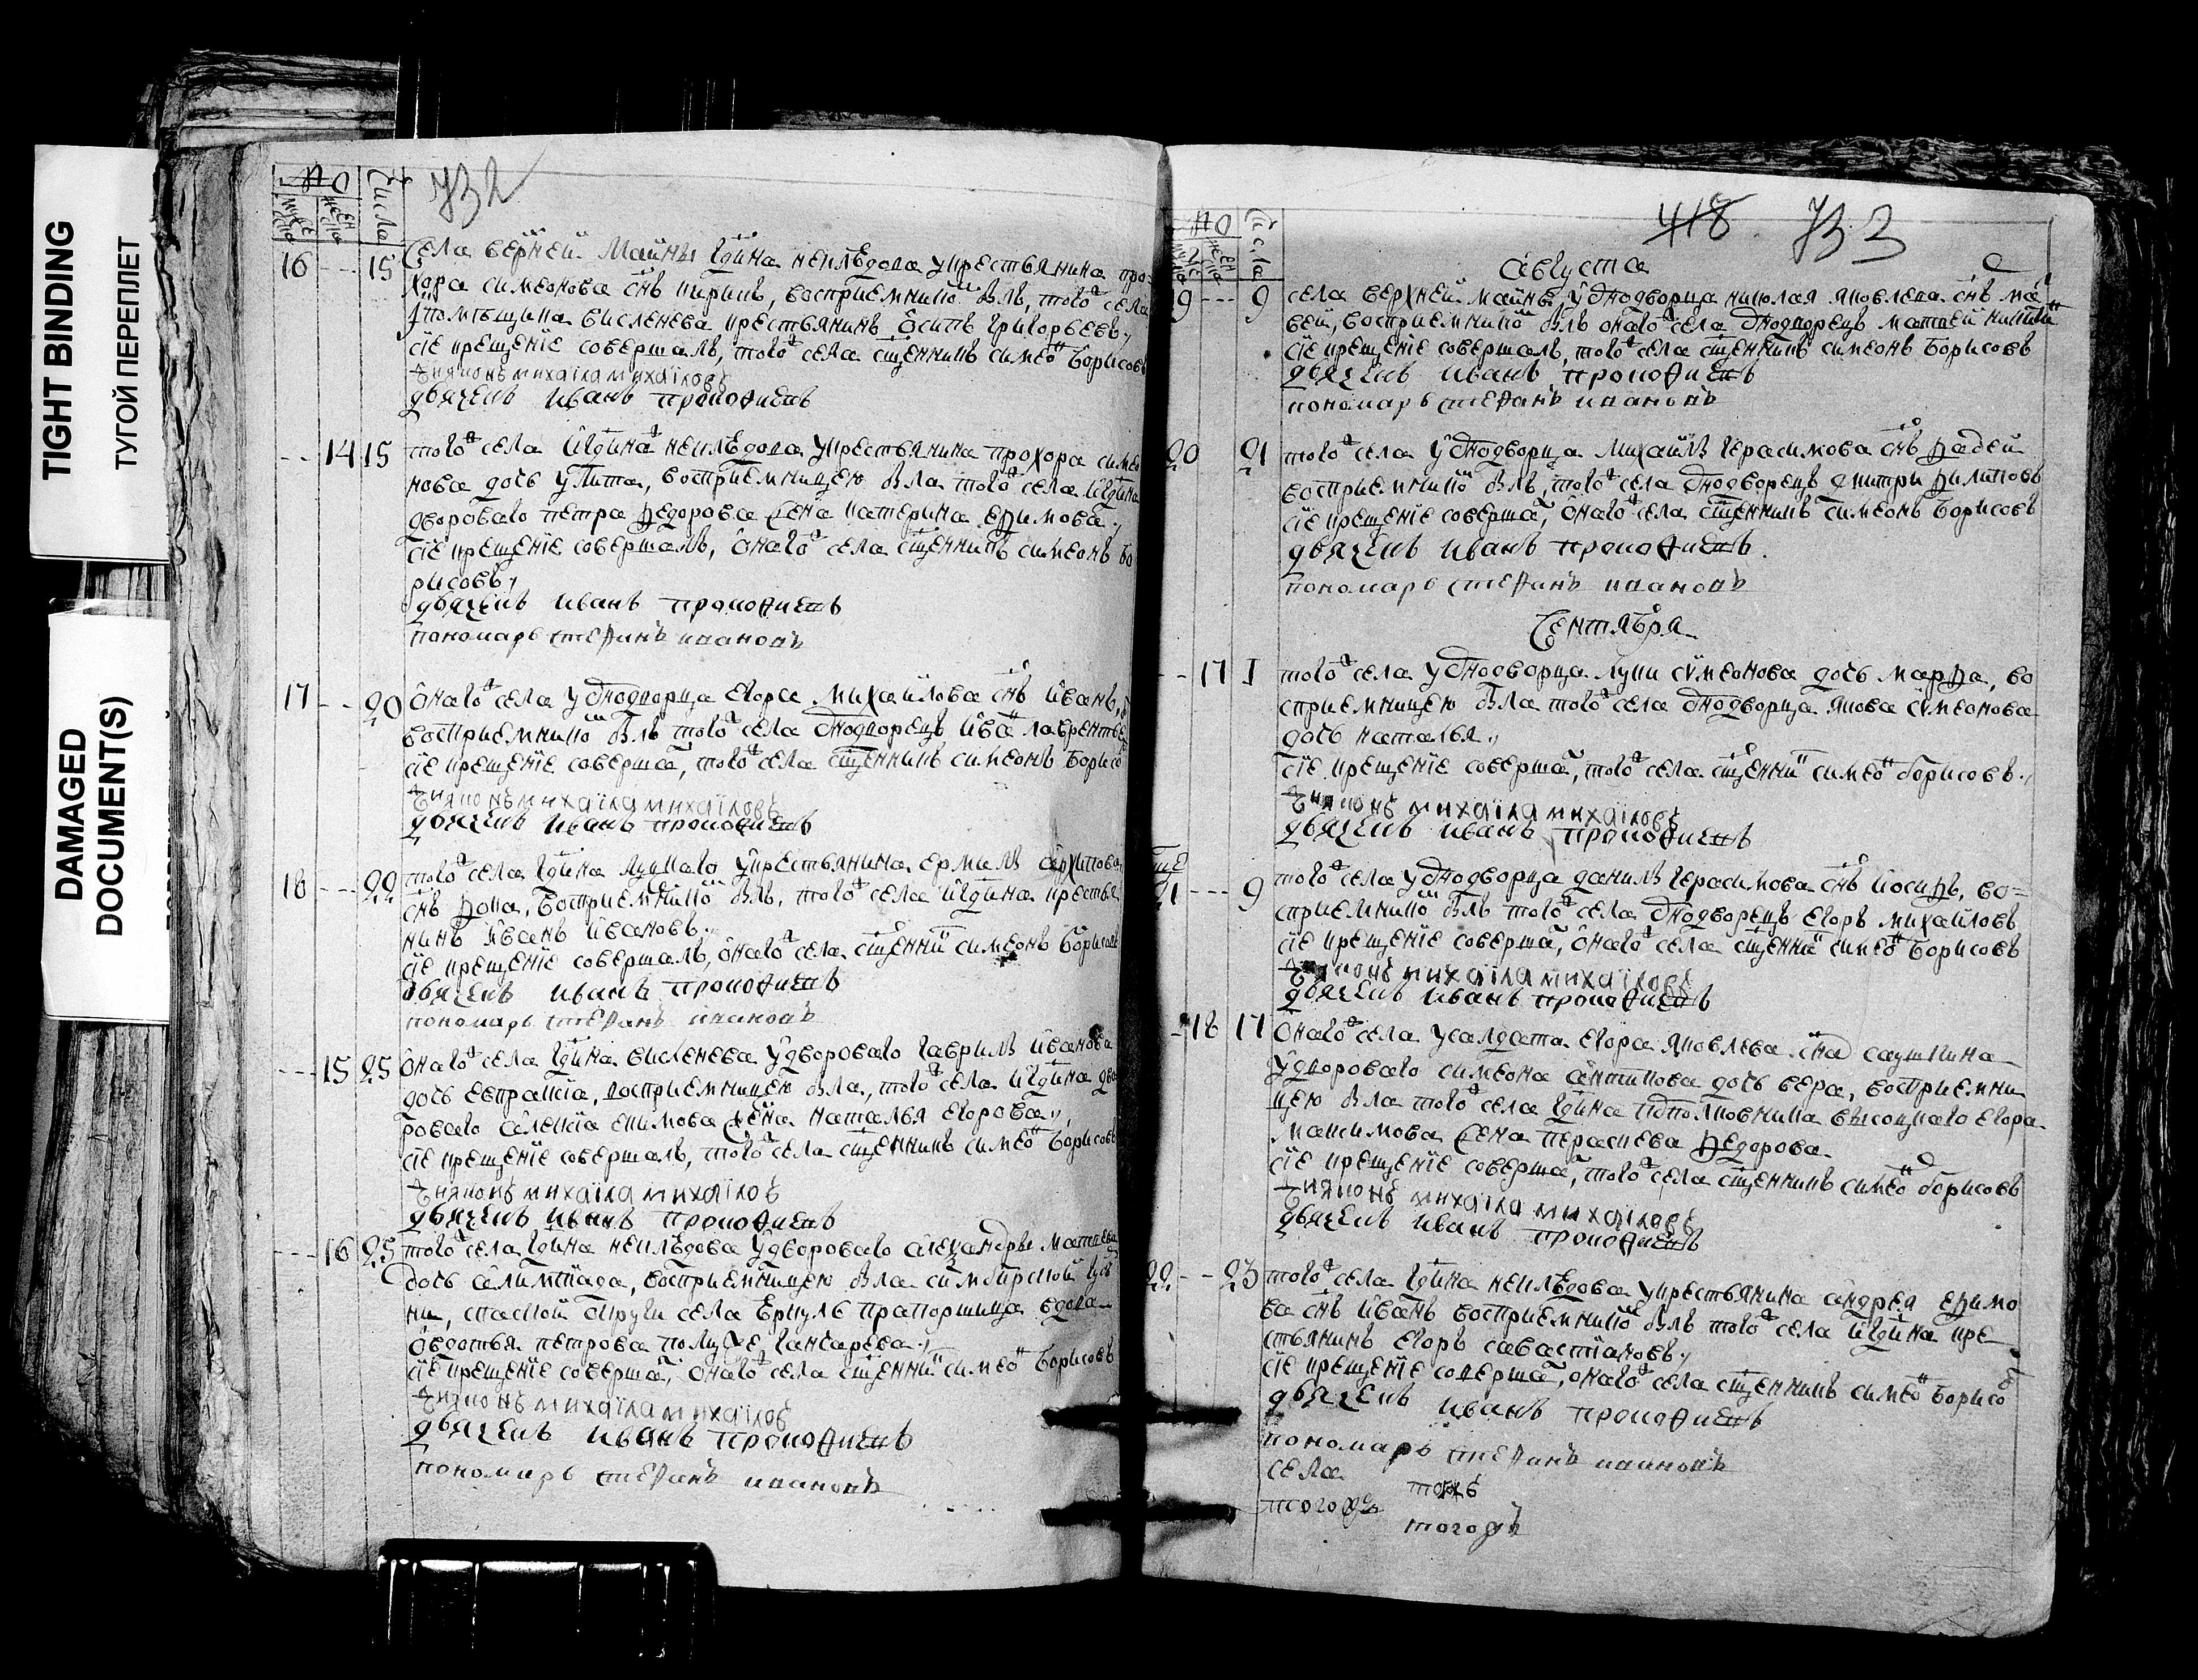 TIGHT BINDING
ТУГОЙ ПЕРЕПЛЕТ
DAMAGED
DOCUMENT(S)
732
Числа
16 15 Села верхней Майны гдина неклѣдова у крестьянина про
хора симеонова снъ кирикъ, восприемникō былъ, того села
помѣщика висленева крестьянинъ Ѻсипъ григорьевъ,
сїе крещенїе совершалъ, того села сщенникъ симеō борисовъ
дияконъ михаїла михаїловъ
дьячекъ иванъ прокофиевъ
14 15 того села гдина неклѣдова у крестьянина прохора симео
нова дочь улита, восприемницею была того села гдина
двороваго петра ѳедорова жена катерина еѳимова,
сїе крещенїе совершалъ, онаго села сщенникъ симеонъ бо
рисовъ,
дьячекъ иванъ прокофиевъ
пономарь стефанъ ивановъ
17 20 Онаго села у однодворца егора михайлова снъ иванъ,
восприемникō былъ того села однодворецъ ива лавренть
сїе крещенїе соверша, того села сщенникъ симеонъ борисо
дияконъ михаїла михаїловъ
дьячекъ иванъ прокофиевъ
18 22 того села гдина у крестьянина ермилы архипова
снъ ѳока, восприемникō былъ, того села гдина крестья
нинъ иванъ ивановъ,
сїе крещенїе совершалъ, онаго села сщенни симеонъ борисовъ
дьячекъ иванъ прокофиевъ
пономарь стефанъ ивановъ
15 25 Онаго села гдина висленева у двороваго гаврилы иванова
дочь евпраксїа, восприемницею была, того села гдина дво
роваго алексїа екимова жена наталья егорова,
сїе крещенїе совершалъ, того села сщенникъ симеō борисовъ
дияконъ михаїла михаїловъ
дьячекъ иванъ прокофиевъ
16 25 того села гдина неклѣдова у двороваго александры матвева
дочь алимпїада, восприемницею была симбирской губе
нии, спаской округи села прапорщица вдова
авдотья петрова
сїе крещенїе соверша, онаго села сщенни симеō борисовъ
дияконъ михаїла михаїловъ
дьячекъ иванъ прокофиевъ
пономарь стефанъ ивановъ
418 733
Числа
августа
19 9 села верхней майны, у однодворца николая яковлева снъ ма
вей, восприемникō былъ онаго села однодворецъ матвей
сїе крещенїе совершалъ, того села сщенникъ симеонъ борисовъ
дьячекъ иванъ прокофиевъ
пономарь стефанъ ивановъ
20 21 того села у однодворца михайлы герасимова снъ ѳадей
восприемникō былъ, того села однодворецъ дмитри ѳилиповъ
сїе крещенїе соверша, онаго села сщенникъ симеонъ борисовъ
дьячекъ иванъ прокофиевъ.
пономарь стефанъ ивановъ
Сентября
17 1 того села у однодворца луки сѵмеонова дочь марѳа, во
сприемницею была того села однодворца якова сѵмеонова
дочь наталья,
сїе крещенїе соверша, того села сщенни симеō борисовъ,
дияконъ михаїла михаїловъ
дьячекъ иванъ прокофиевъ
21 9 того села у однодворца данилы герасимова снъ иосиѳъ, во=
сприемникō былъ того села однодворецъ егоръ михайловъ
сїе крещенїе соверша, онаго села сщенни симеō борисовъ
дияконъ михаїла михаїловъ
дьячекъ иванъ прокофиевъ
18 17 Онаго села у салдата егора яковлева сна саушкина
у двороваго симеона антипова дочь вера, восприемни
цею была того села гдина подполковника высоцкаго егора
максимова жена парасꙗева ѳедорова
сїе крещенїе соверша, того села сщенникъ симеō борисовъ
дияконъ михаїла михаїловъ
дьячекъ иванъ прокофиевъ
22 23 того села гдина неклѣдова у крестьянина андрея еѳимо
ва снъ иванъ восприемникō былъ того села гдина кре
стьянинъ егоръ савастїановъ,
сїе крещенїе соверша, онаго села сщенникъ симеō борисо
дьячекъ иванъ прокофиевъ
пономарь стефанъ ивановъ
села